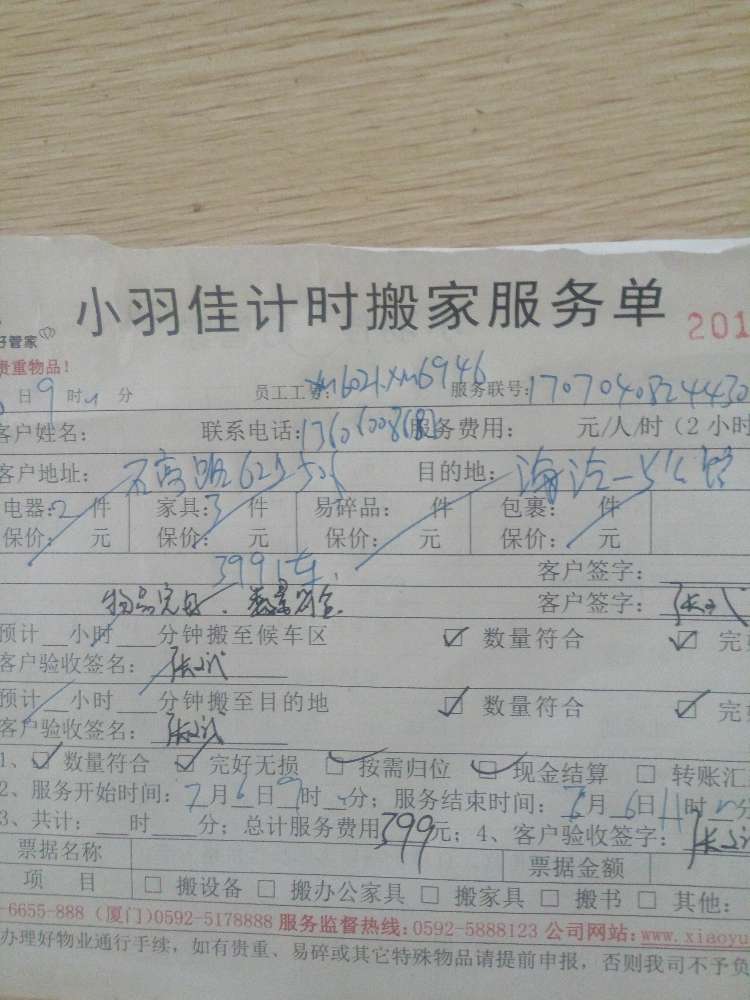 小羽佳计时搬家服务单 201
好管家
贵重物品!
日9时 分 员工工 XM6021.XM6946 服务联号:17070408244430
客户姓名: 联系电话: 服务费用: 元/人/时(2小时
客户地址: 目的地: 海沧
电器:2 件 家具:3 件 易碎品: 件 包裹: 件
保价: 元 保价: 元 保价: 元 保价: 元
399/车 客户签字:
物品完好、数量符合. 客户签字:
预计__小时___分钟搬至候车区 ☑ 数量符合 ☑ 完好
客户验收签名:
预计__小时___分钟搬至目的地 ☑ 数量符合 ☑ 完好
客户验收签名:
1、☑ 数量符合 ☑ 完好无损 ☑ 按需归位 ☑ 现金结算 □ 转账汇
2、服务开始时间:7月6日9时 分;服务结束时间:7月6日11时 分
3、共计:___时____分;总计服务费用399元;4、客户验收签字:
票据名称 票据金额
项 目 □ 搬设备 □ 搬办公家具 □ 搬家具 □ 搬书 □ 其他:
-6655-888(厦门)0592-5178888 服务监督热线:0592-5888123 公司网站:www.xiaoyu
办理好物业通行手续,如有贵重、易碎或其它特殊物品请提前申报,否则我司不予负